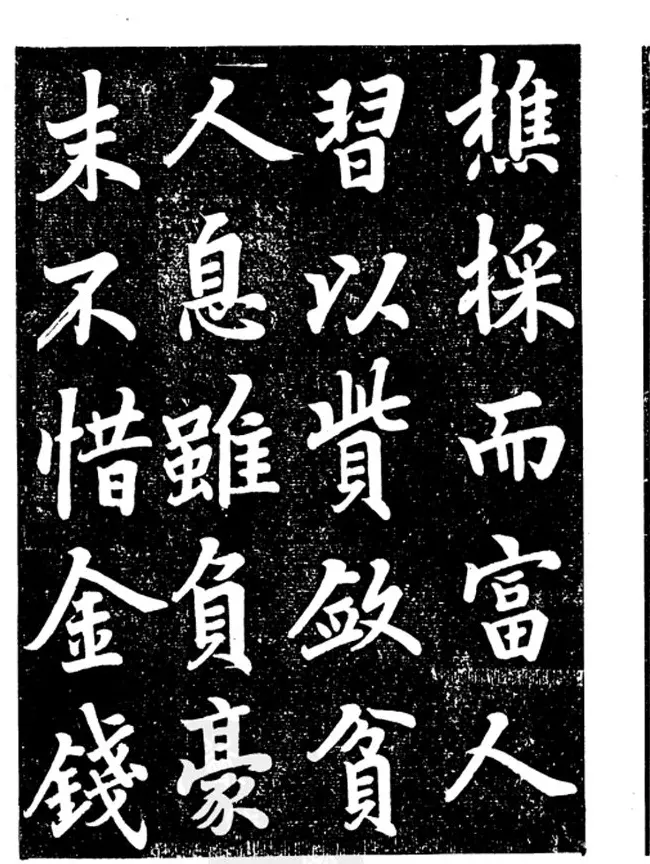 樵採而富人
習以貲斂貧
人息雖負豪
末不惜金錢